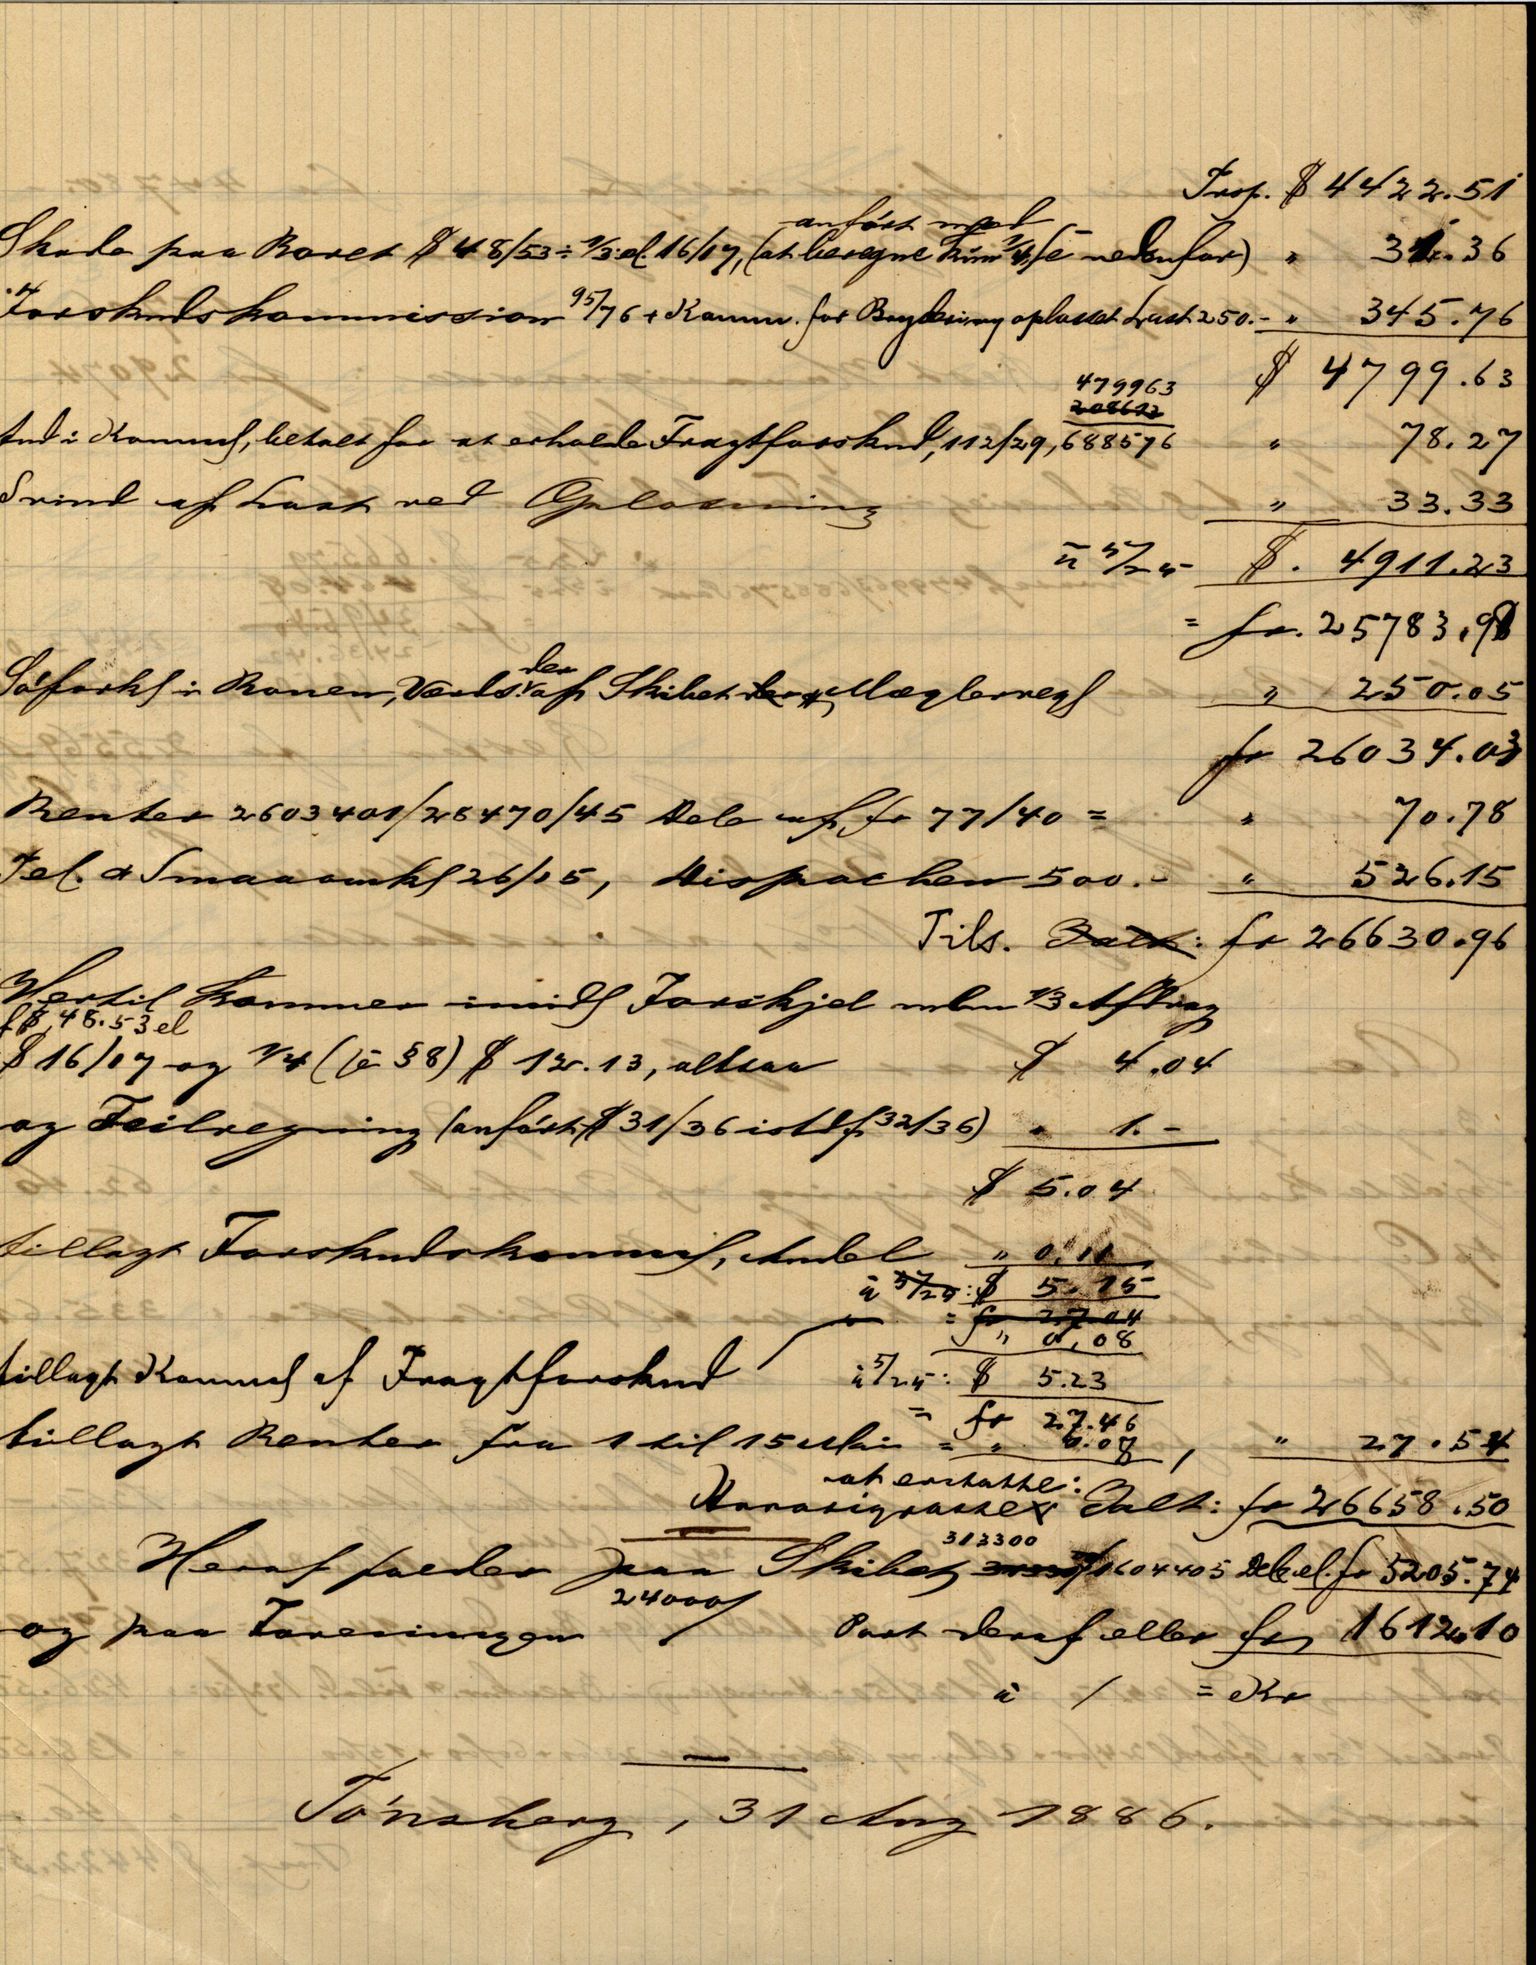 Trsp. $ 4422.51
anført med
Skade paa Baret $ 48/53 ÷ 1/3: el. 16/17, (at beregne kun 1/4, se nedenfor) " 31.36
Forskudskommission 95/76 + Komm. for oplosset Last 250.- " 345.76
$ 4799.63
479963
And i Komms, betalt for at erholde Fragtforskud, 112/29, 688576 " 78.27
Svind af Last ved Oplosning " 33.33
à 5/25 $. 4911.23
= fr. 25783.98
Søforkl i Rouen, af Skibet, Mæglerregs " 250.05
fr 26034.03
Renter 2603401/28470/45 Dele af fr 77/40 = " 70.78
Tel. & Smaaomk 26/15, Dispachen 500.- " 526.15
Tils. : fr 26630.96
Hertil kommer imidl Forskjel mlm 1/3 Afdrag
f $ 48.53 el
$ 16/17 og 1/4 (se § 8) $ 12.13, altsaa $ 4.04
og Feilregning (anført $ 31/36 istdf 32/36) " 1.-
$ 5.04
tillagt Forskudskomms, Andel " 0.11
à 5/25: $ 5.15
= fr 27.04
" 0.08
tillagt Komms af Fragtforskud à 5/25: $ 5.23
= fr 27.46
tillagt Renter fra 1 til 15 = " 0.08, " 27.54
at erstatte:
Ialt: fr 26658.50
313300
Heraf falder paa Skibet /1604405 Dele el. fr 5205.74
24000/
og paa Foreningen / Part deraf eller fr 1612.10
à / = Kr
Tønsberg, 31 Aug 1886.